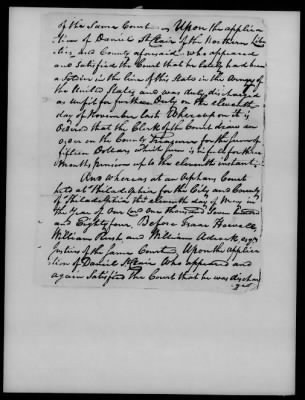 of the Same Court — Upon the applica
tion of Daniel St Clair of the Northern Liber
ties, and County aforesaid, who appeared
and Satisfied the Court that he lately had been
a Soldier in the line of this State in the Army of
the United States, and was duly discharged
as unfit for further Duty on the eleventh
day of November last. Whereupon it is
Ordered that the Clerk of the Court draw an
order on the County Treasurer for the sum of
fifteen Dollars which sum is in full for three
months pension up to the eleventh instant.
And whereas at an Orphans Court
held at Philadelphia for the City and County
of Philadelphia the eleventh day of May in
the year of our Lord one thousand Seven hundred
and Eightyfour, Before Isaac Howell,
William Rush and William Adcock, esqrs
Justices of the Same Court, Upon the applica
tion of Daniel St Clair who appeared and
again Satisfied the Court that he was dischar
ged